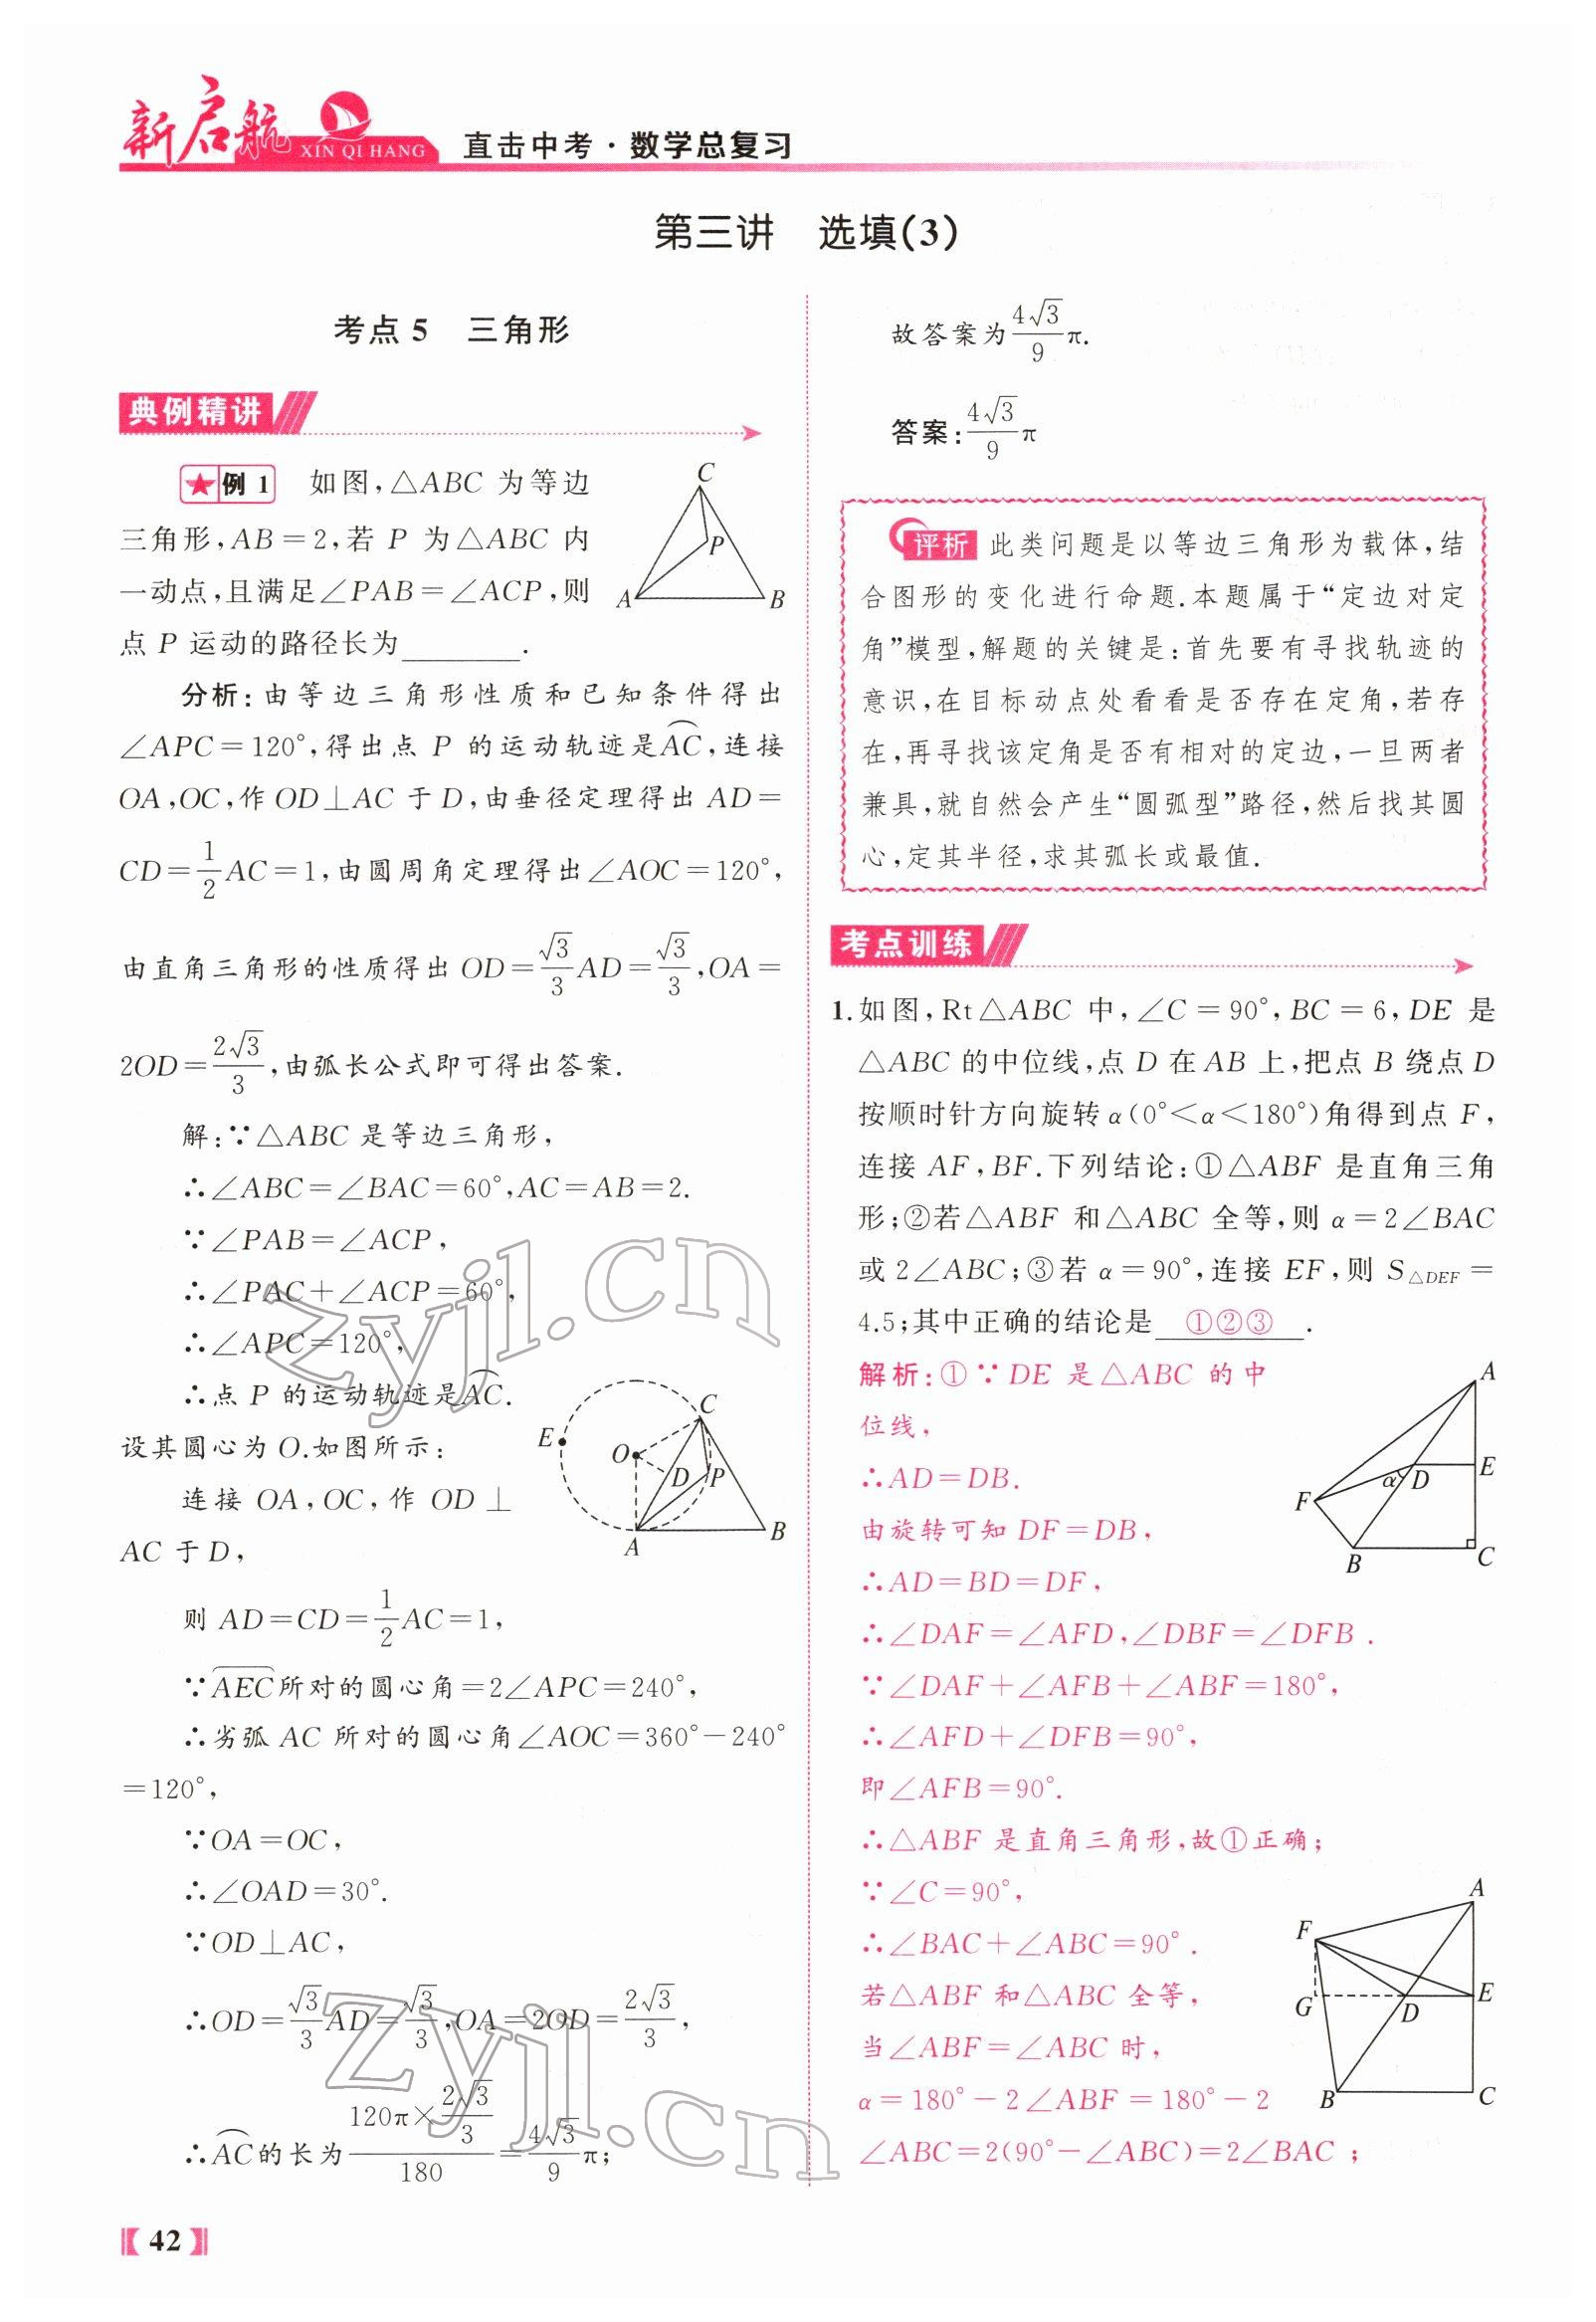 新启航 XIN QI HANG 直击中考·数学总复习
第三讲 选填(3)
考点 5 三角形
典例精讲
★例 1 如图,△ABC 为等边
三角形,AB=2,若 P 为△ABC 内
一动点,且满足∠PAB=∠ACP,则
点 P 运动的路径长为________.
C
P
A
B
分析:由等边三角形性质和已知条件得出
∠APC=120°,得出点 P 的运动轨迹是⌒AC,连接
OA,OC,作 OD⊥AC 于 D,由垂径定理得出 AD=
CD=1/2AC=1,由圆周角定理得出∠AOC=120°,
由直角三角形的性质得出 OD=√3/3AD=√3/3,OA=
2OD=2√3/3,由弧长公式即可得出答案.
解:∵△ABC 是等边三角形,
∴∠ABC=∠BAC=60°,AC=AB=2.
∵∠PAB=∠ACP,
∴∠PAC+∠ACP=60°,
∴∠APC=120°,
∴点 P 的运动轨迹是⌒AC.
设其圆心为 O.如图所示:
连接 OA,OC,作 OD⊥
AC 于 D,
C
E
O
D
P
A
B
则 AD=CD=1/2AC=1,
∵⌒AEC所对的圆心角=2∠APC=240°,
∴劣弧 AC 所对的圆心角∠AOC=360°-240°
=120°,
∵OA=OC,
∴∠OAD=30°.
∵OD⊥AC,
∴OD=√3/3AD=√3/3,OA=2OD=2√3/3,
∴⌒AC的长为(120π×2√3/3)/180=4√3/9π;
故答案为4√3/9π.
答案:4√3/9π
评析 此类问题是以等边三角形为载体,结
合图形的变化进行命题.本题属于“定边对定
角”模型,解题的关键是:首先要有寻找轨迹的
意识,在目标动点处看看是否存在定角,若存
在,再寻找该定角是否有相对的定边,一旦两者
兼具,就自然会产生“圆弧型”路径,然后找其圆
心,定其半径,求其弧长或最值.
考点训练
1.如图,Rt△ABC 中,∠C=90°,BC=6,DE 是
△ABC 的中位线,点 D 在 AB 上,把点 B 绕点 D
按顺时针方向旋转 α(0°<α<180°)角得到点 F,
连接 AF,BF.下列结论:①△ABF 是直角三角
形;②若△ABF 和△ABC 全等,则 α=2∠BAC
或 2∠ABC;③若 α=90°,连接 EF,则 S△DEF=
4.5;其中正确的结论是 ①②③ .
解析:①∵DE 是△ABC 的中
位线,
∴AD=DB.
由旋转可知 DF=DB,
∴AD=BD=DF,
A
E
α
D
F
B
C
∴∠DAF=∠AFD,∠DBF=∠DFB.
∵∠DAF+∠AFB+∠ABF=180°,
∴∠AFD+∠DFB=90°,
即∠AFB=90°.
∴△ABF 是直角三角形,故①正确;
∵∠C=90°,
∴∠BAC+∠ABC=90°.
若△ABF 和△ABC 全等,
当∠ABF=∠ABC 时,
α=180°-2∠ABF=180°-2
∠ABC=2(90°-∠ABC)=2∠BAC;
A
F
G
D
E
B
C
42
zyjl.cn
zyjl.cn